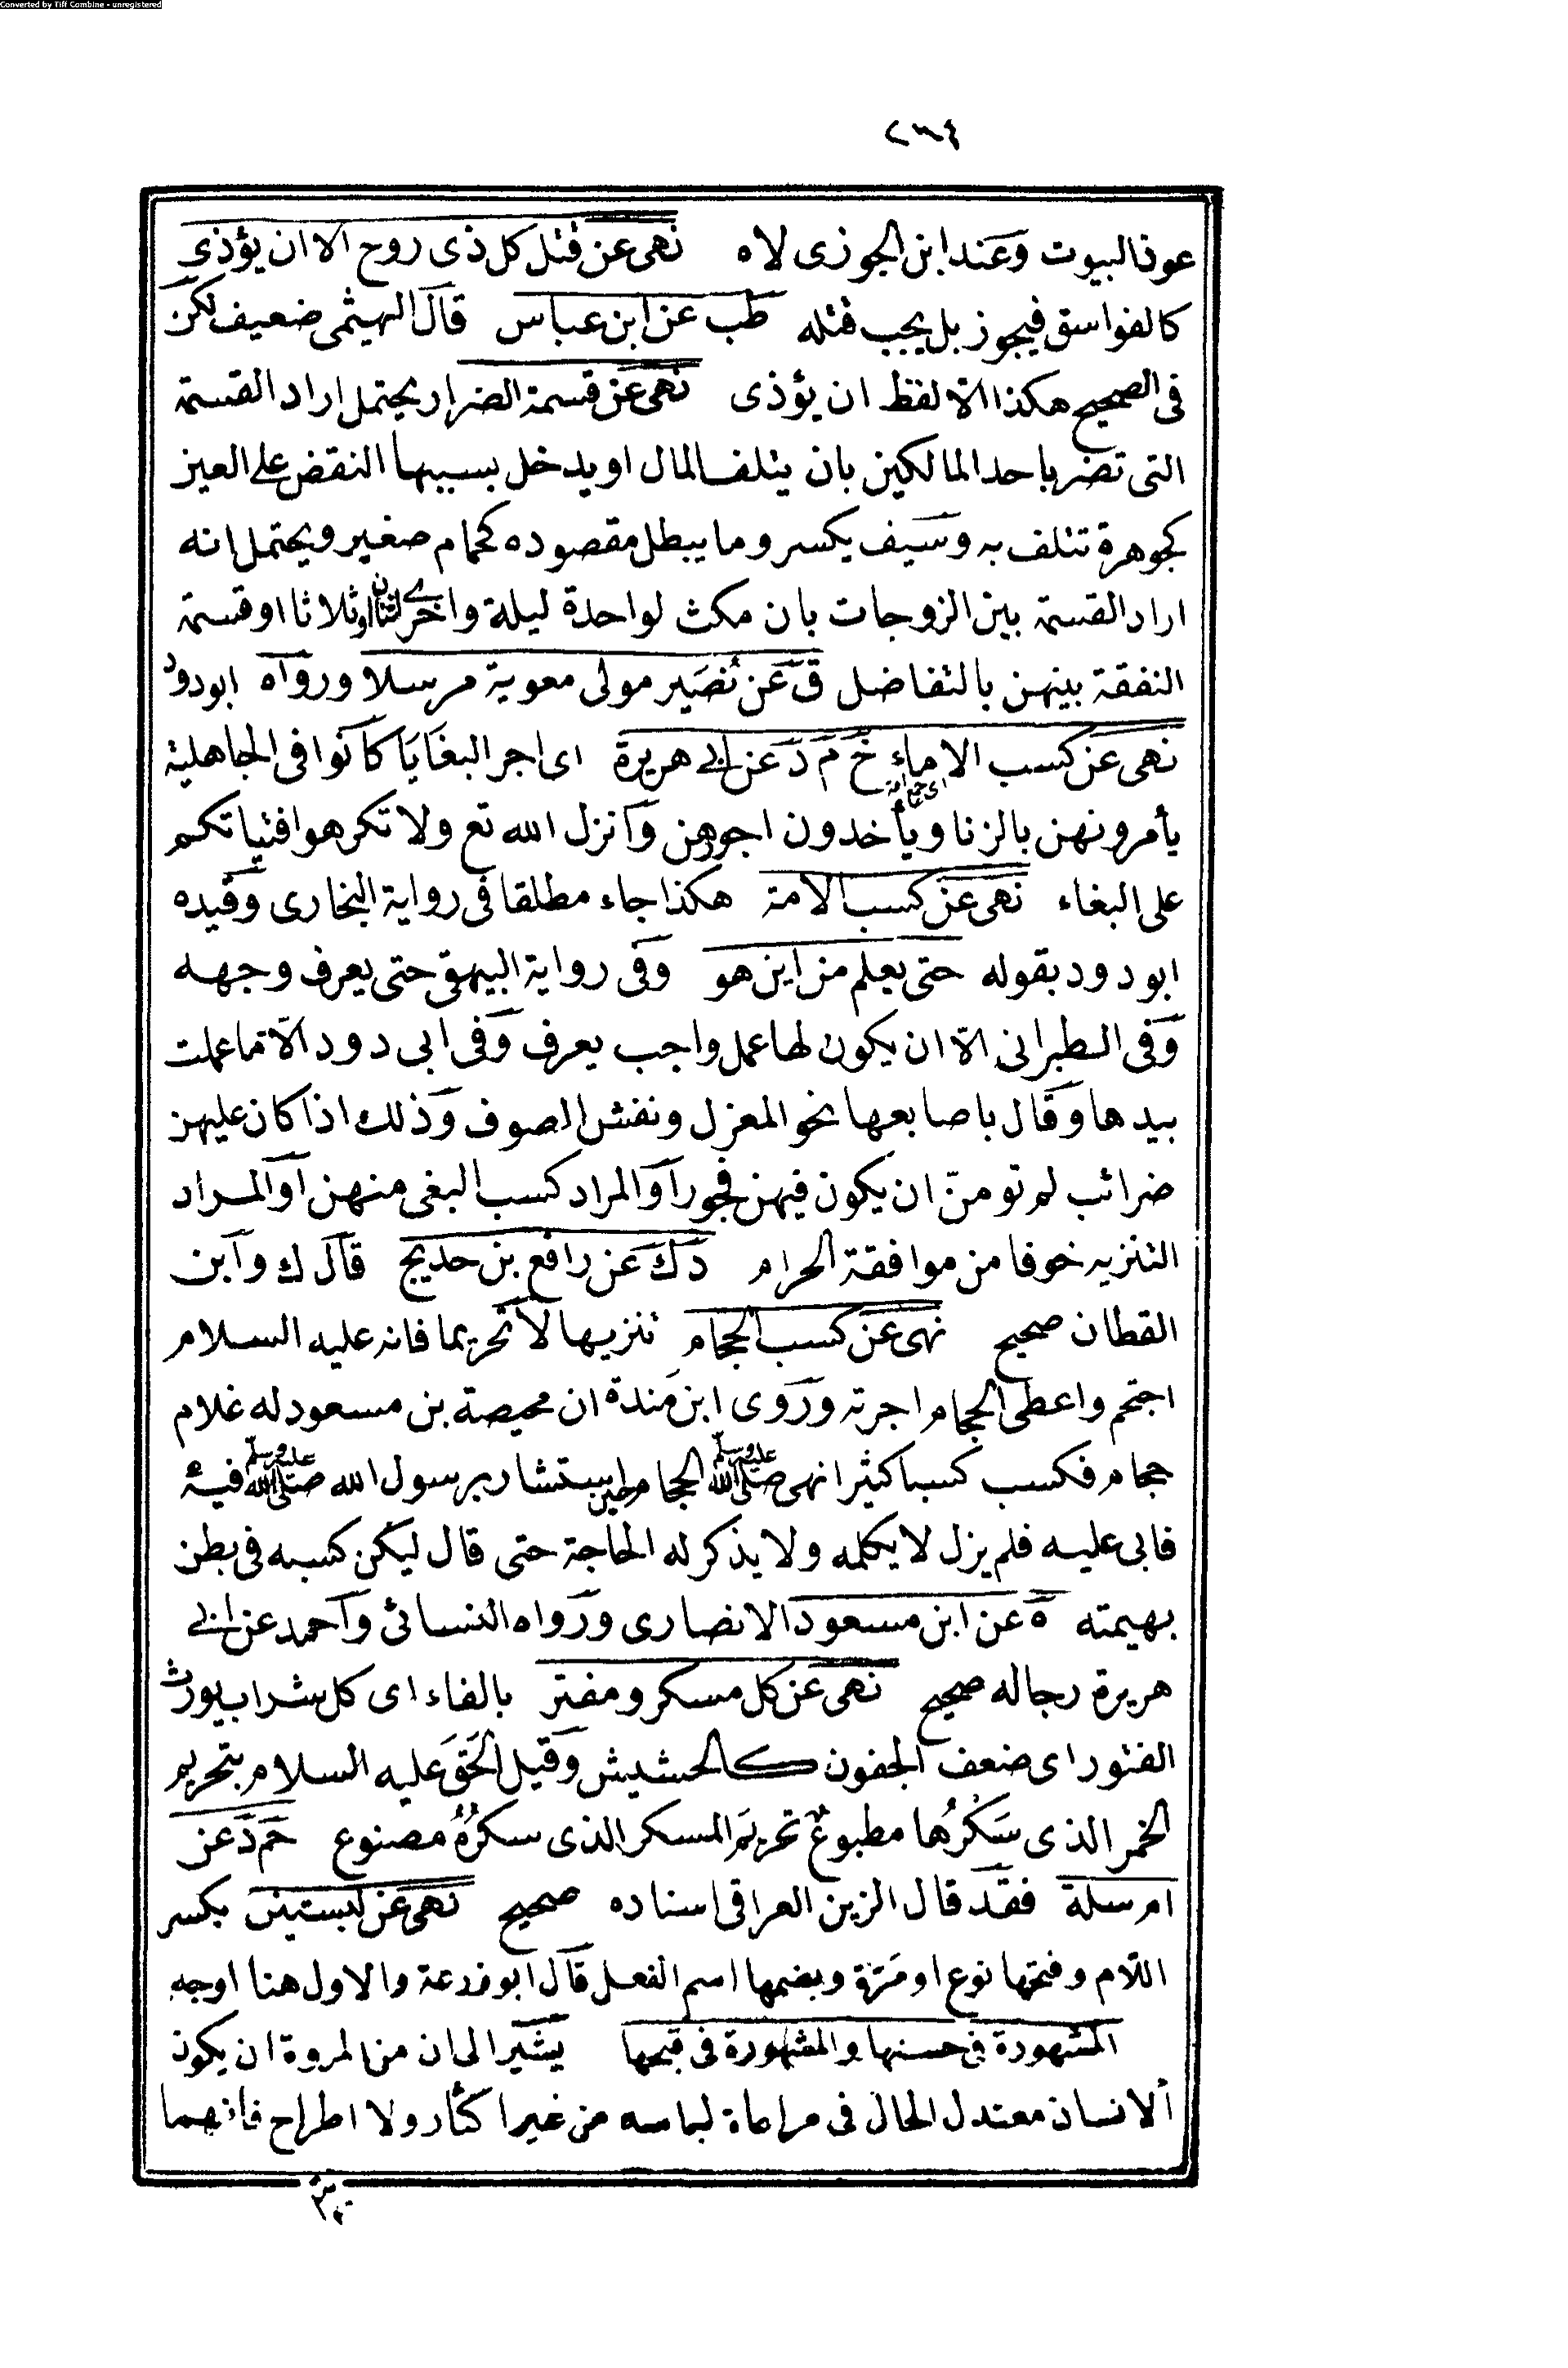 Converted by Tiff Combine - unregistered
٢٦٤
عوذ البيوت وعند ابن الجوزى لاه نهى عن قتل كل ذى روح الا ان يؤذى
كالفواسق فيجوز بل يجب قتله طب عن ابن عباس قال الهيثمى ضعيف لكن
فى الصحيح هكذا الا لفظ ان يؤذى نهى عن قسمة الضرار يحتمل اراد القسمة
التى تضر باحد المالكين بان يتلف المال او يدخل بسببها النقض على العين
كجوهرة تتلف به وسيف يكسر وما يبطل مقصوده كحمام صغير ويحتمل انه
اراد القسمة بين الزوجات بان مكث لواحدة ليلة واخرى لثنتان او ثلاثا او قسمة
النفقة بينهن بالتفاضل ق عن نُصَير مولى معوية مرسلا ورواه ابو دود
نهى عن كسب الاماء خ م د عن ابى هريرة اى اجر البغايا كانوا فى الجاهلية
اى جمع امة
يأمرونهن بالزنا ويأخذون اجورهن وانزل الله تع ولا تكرهوا فتياتكم
على البغاء نهى عن كسب الامة هكذا جاء مطلقا فى رواية البخارى وقيده
ابو دود بقوله حتى يعلم من اين هو وفى رواية البيهقى حتى يعرف وجهه
وفى الطبرانى الا ان يكون لها عمل واجب يعرف وفى ابى دود الا ما عملت
بيدها وقال باصابعها نحو المغزل ونفش الصوف وذلك اذا كان عليهن
ضرائب لم تومنّ ان يكون فيهن فجور او المراد كسب البغى منهن او المراد
التنزيه خوفا من موافقة الحرام د ك عن رافع بن خديج قال ك وابن
القطان صحيح نهى عن كسب الحجام تنزيها لا تحريما فانه عليه السلام
احتجم واعطى الحجام اجرته وروى ابن مَندة ان محيصة بن مسعود له غلام
حجام فكسب كسبا كثيرا نهى صلى الله عليه وسلم الحجام استشار برسول الله صلى الله عليه وسلم فيه
فابى عليه فلم يزل لا يكلمه ولا يذكر له الحاجة حتى قال ليكن كسبه فى بطن
بهيمته ه عن ابن مسعود الانصارى ورواه النسائى واحمد عن ابى
هريرة رجاله صحيح نهى عن كل مسكر ومفتر بالفاء اى كل شراب يورث
الفتور اى ضعف الجفون كالحشيش وقيل الحَقَ عليه السلام بتحريم
الخمر الذى سَكَرُها مطبوعٌ تحريَم المسكر الذى سكرُهُ مصنوع حم د عن
ام سلة فقد قال الزين العراقى اسناده صحيح نهى عن لبستين بكسر
اللام وفتحها نوع او مَرّة وبضمها اسم الفعل قال ابو زرعة والاول هنا اوجه
المشهودة فى حسنها والمشهورة فى قبحها يشير الى ان من المروة ان يكون
الانسان معتدل الحال فى مراعاة لباسه من غير اكثار ولا اطراح فانهما